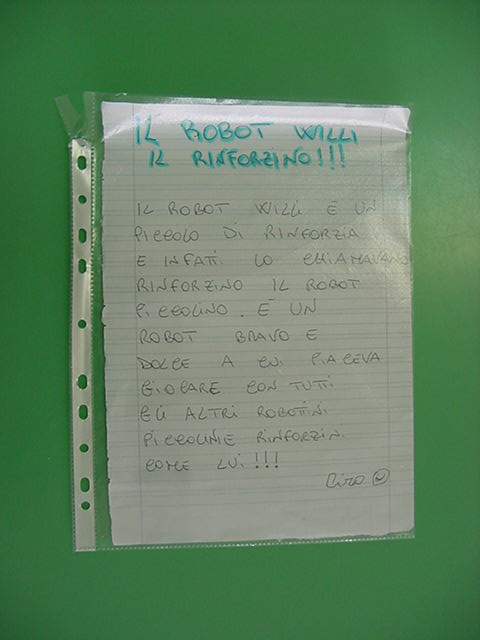 IL ROBOT WILLI
IL RINFORZINO!!!
IL ROBOT WILLI E UN
PICCOLO DI RINFORZIA
E INFATI. LO CHIAMAVANO
RINFORZINO IL ROBOT
PICCOLINO. E' UN
ROBOT BRAVO E
DOLCE A CUI PIACEVA
GIOCARE CON TUTTI
GLI ALTRI ROBOTINI
PICCOLINI E RINFORZINI
COME LUI!!!
Ciro